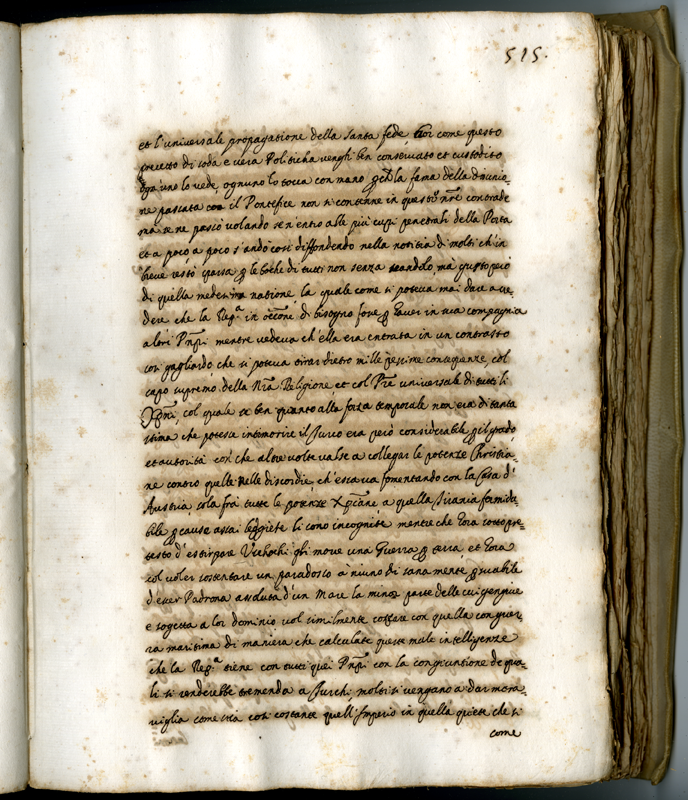 515.
et l'universale propagatione della santa fede, hor come questo
precetto di soda e vera Politicha venghi ben conservato et custodito
ogn'uno lo vede, ognuno lo tocca con mano la fama dello
ne passata con il Pontefice non si contenne in questo nre contrade
ma se ne passò volando se n'entrò alle più cupi penetrali della Porta
et a poco, a poco s'andò così diffondendo nella notitia di molti ch'in
breve restò sparsa p le boche di tutti non senza scandolo, mà gusto però
di quella medesima natione, la quale come si poteva mai dare a cre„
dere che la Rep.a in occ.ne di bisogno fosse p haver in sua compagnia
altri Pnpi mentre vedeva ch'ella era entrata in un contrasto
così gagliardo che si poteva tirar dietro mille pessime conseguenze, col
capo supremo della Nra Religione, et col Pre universale di tutti li
Xpni, col quale se ben quanto alla forza temporale non era di tanta
stima che potesse intimorire il Turco era però considerabile p il grado,
et autorità con che altre volte valse a collegar le potenze Christia„
ne contro quelle nelle discordie, ch'essa va fomentando con la Casa d'
Austria, sola frà tutte le potenze Xpiane, a quella Tirania formida„
bile p cause assai leggiere li sono incognite mentre che hora sotto pre„
testo d'estirpare Uschochi gli move una Guerra p terra, et hora
col voler sostentare un paradosso à niuno di sana mente p
d'esser Padrona assoluta d'un Mare la minor parte delle cui
e sogetta a lor dominio vol similmente cozzare con quella con guer„
ra maritima di maniera che calculate queste male intelligenze
che la Rep.a tiene con tutti quei Pnpi con la congiuntione de qua„
li si renderebbe tremenda a Turchi molti si vengano a dar mera„
viglia come stia così costante quell'Imperio in quella quiete che si
come